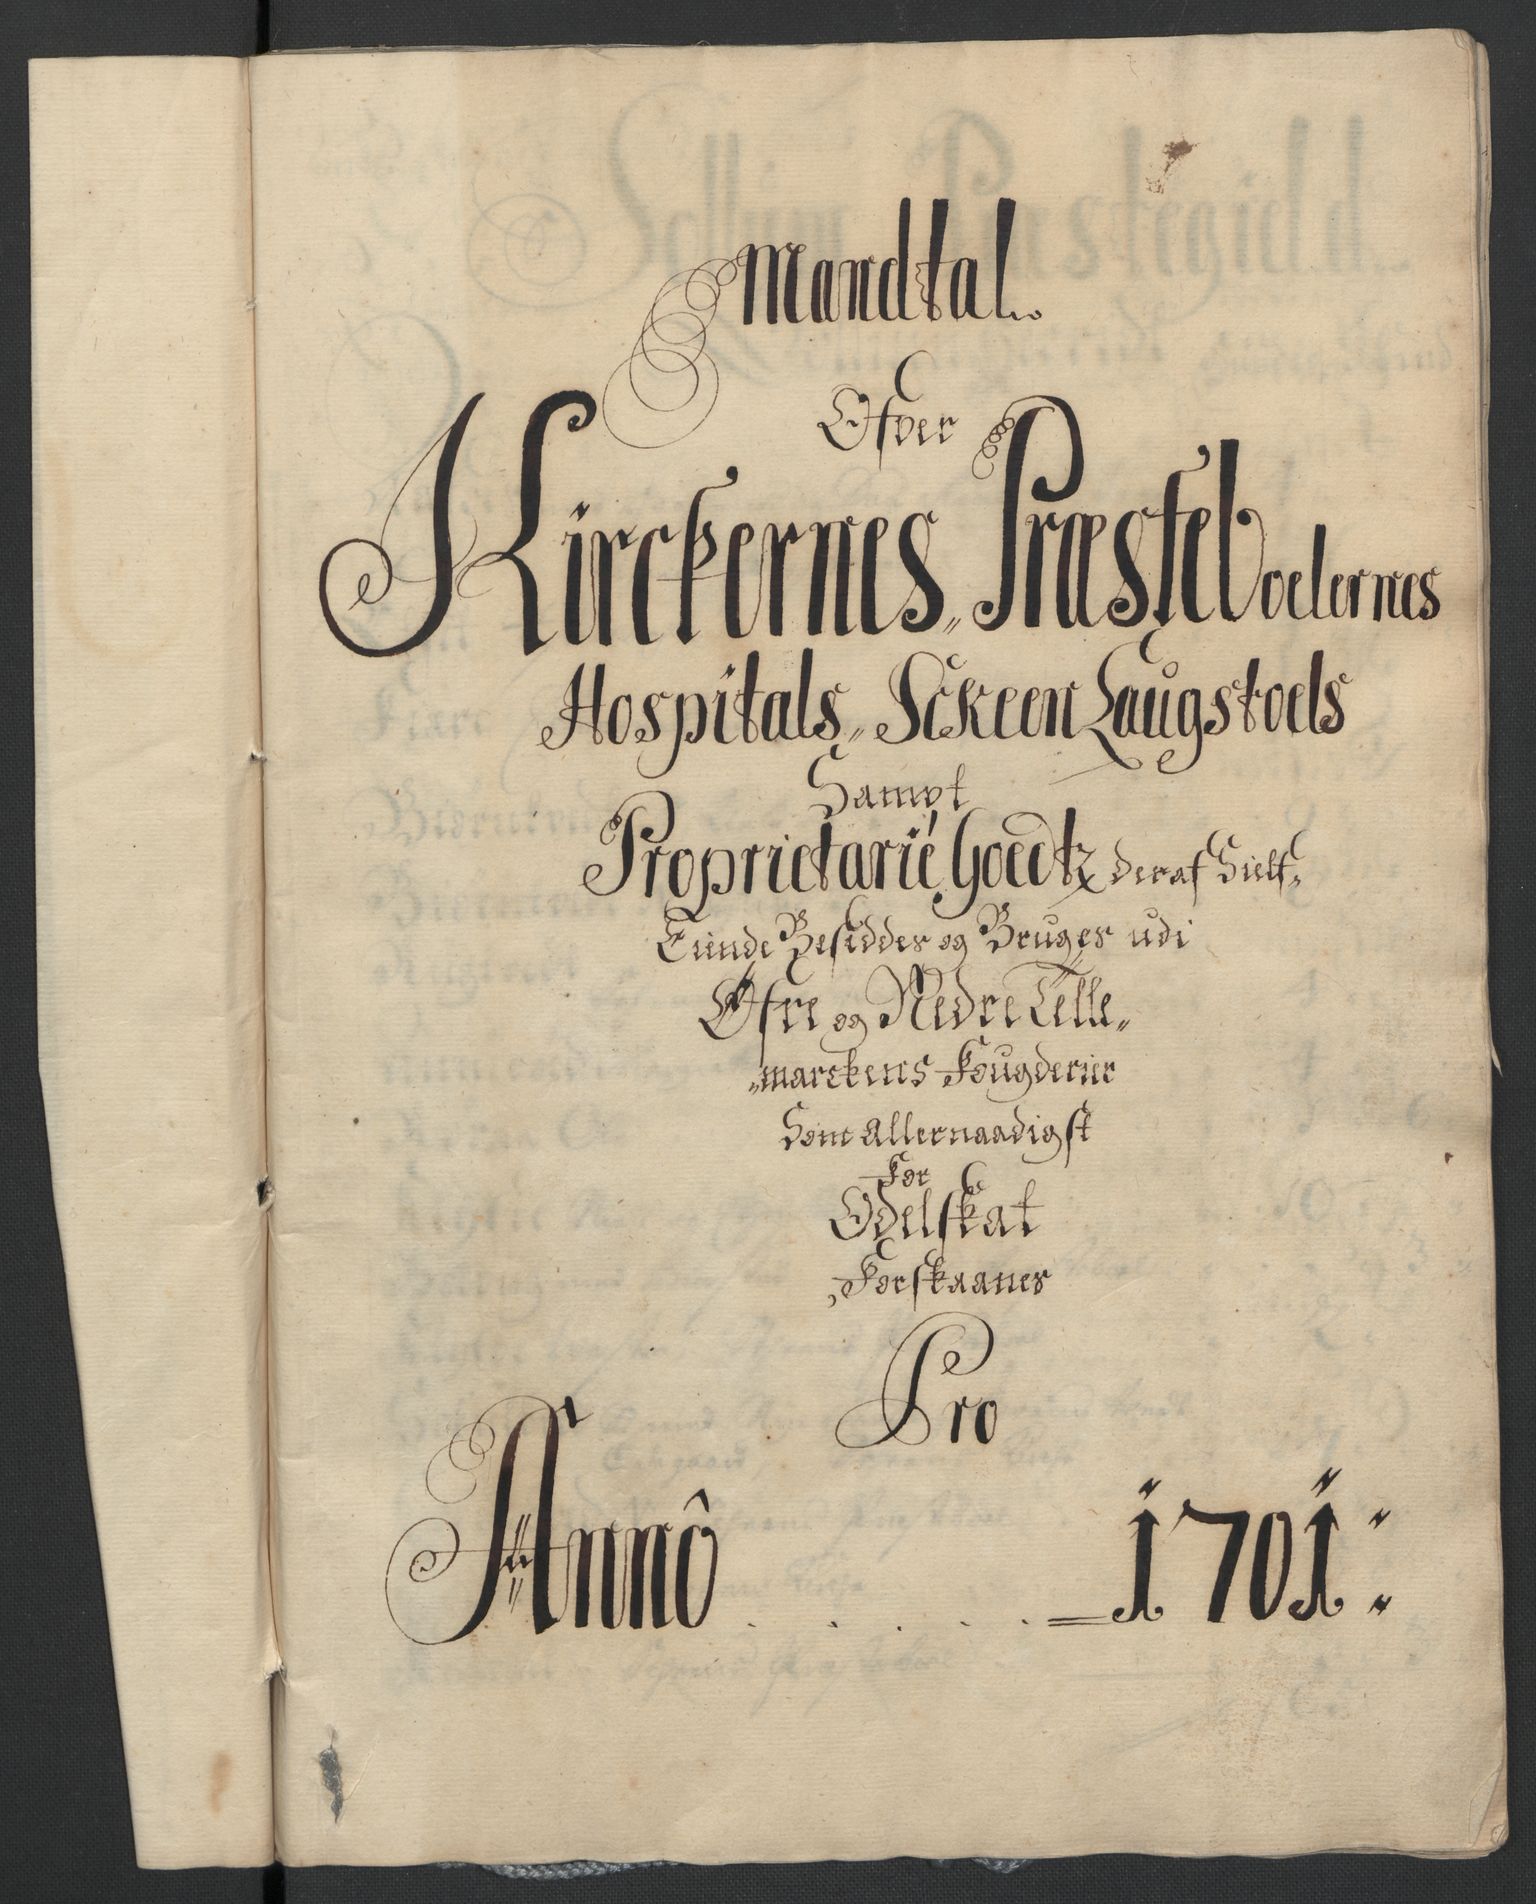 Mandtal
Ofver
Kirckernes, Præsteboelernes
Hospitals, Sckeen Laugstoels
Sampt
Proprietarie Goedtz deraf Sielf,
Eiinde Besiddes og Bruges udi
Øfre og Nedre Telle„
„marckens Fougderier
Som Allernaadigst
For
Odelskat
Forskaanes
Pro
Anno . . . . . 1701: